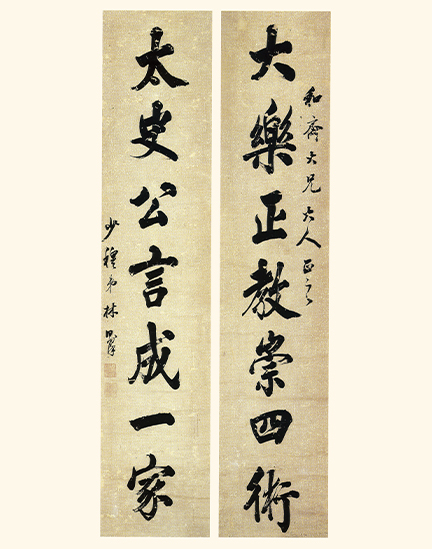 大樂正教崇四術
和齋大兄大人正之
太史公言成一家
少穆弟林則徐